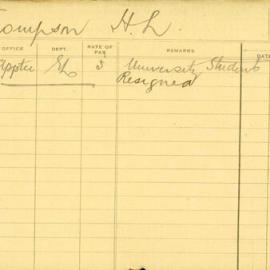 ompson H. L.
OFFICE DEPT. RATE OF PAY REMARKS DAT
3 University Student
Resigned